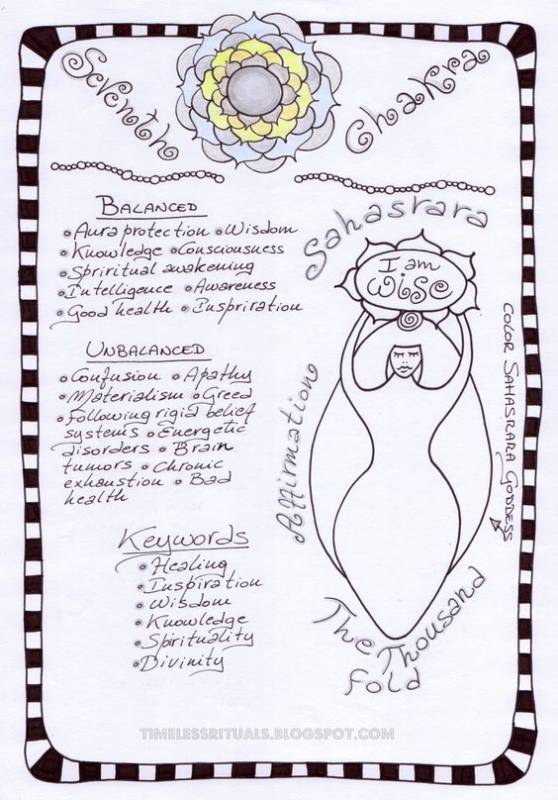 Seventh Chakra
BALANCED
• Aura protection • Wisdom
• Knowledge • Consciousness
• Spriritual awakening
• Intelligence • Awareness
• Good health • Inspriration
UNBALANCED
• Confusion • Apathy
• Materialism • Greed
• Following rigid belief
systems • Energetic
disorders • Brain
tumors • Chronic
exhaustion • Bad
health
Keywords
• Healing
• Inspiration
• Wisdom
• Knowledge
• Spirituality
• Divinity
Sahasrara
I am
Wise
Affirmation
COLOR SAHASRARA GODDESS
The Thousand
fold
TIMELESSRITUALS.BLOGSPOT.COM